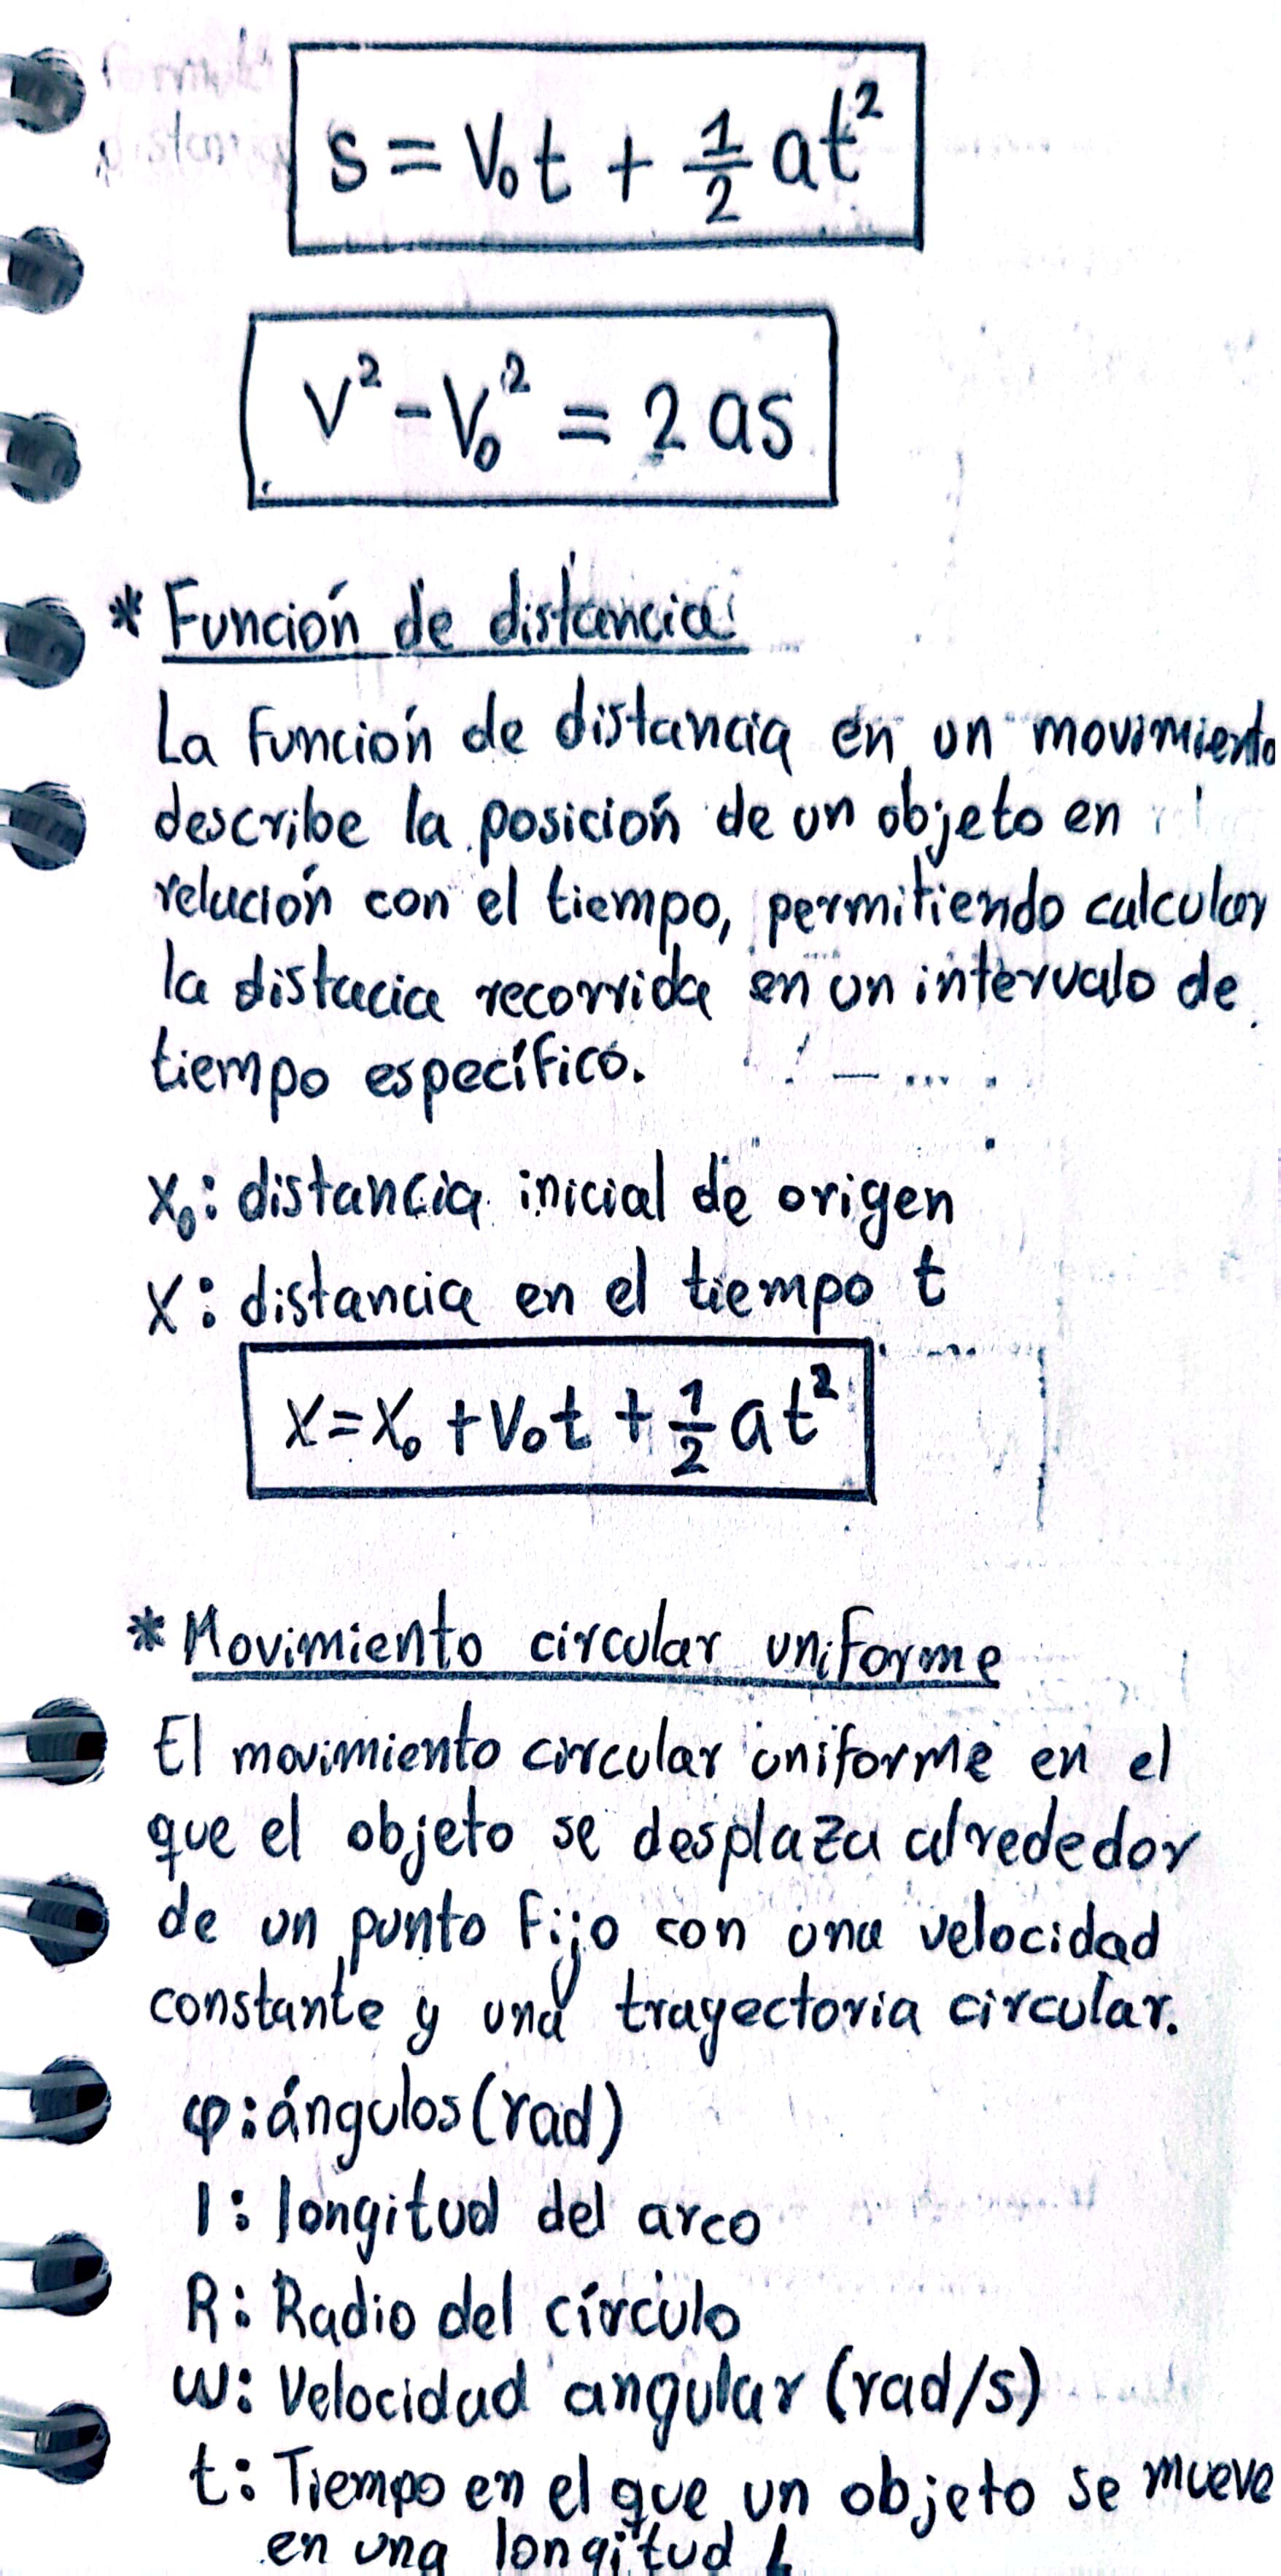 s = V₀t + 1/2 at²
V² - V₀² = 2as
* Función de distancia
La función de distancia en un movimiento
describe la posición de un objeto en
relación con el tiempo, permitiendo calcular
la distacia recorrida en un intervalo de
tiempo específico.
X₀: distancia inicial de origen
X: distancia en el tiempo t
X = X₀ + V₀t + 1/2 at²
* Movimiento circular uniforme
El movimiento circular uniforme en el
que el objeto se desplaza alrededor
de un punto fijo con una velocidad
constante y una trayectoria circular.
φ: ángulos (rad)
l: longitud del arco
R: Radio del círculo
ω: Velocidad angular (rad/s)
t: Tiempo en el que un objeto se mueve
en una longitud l